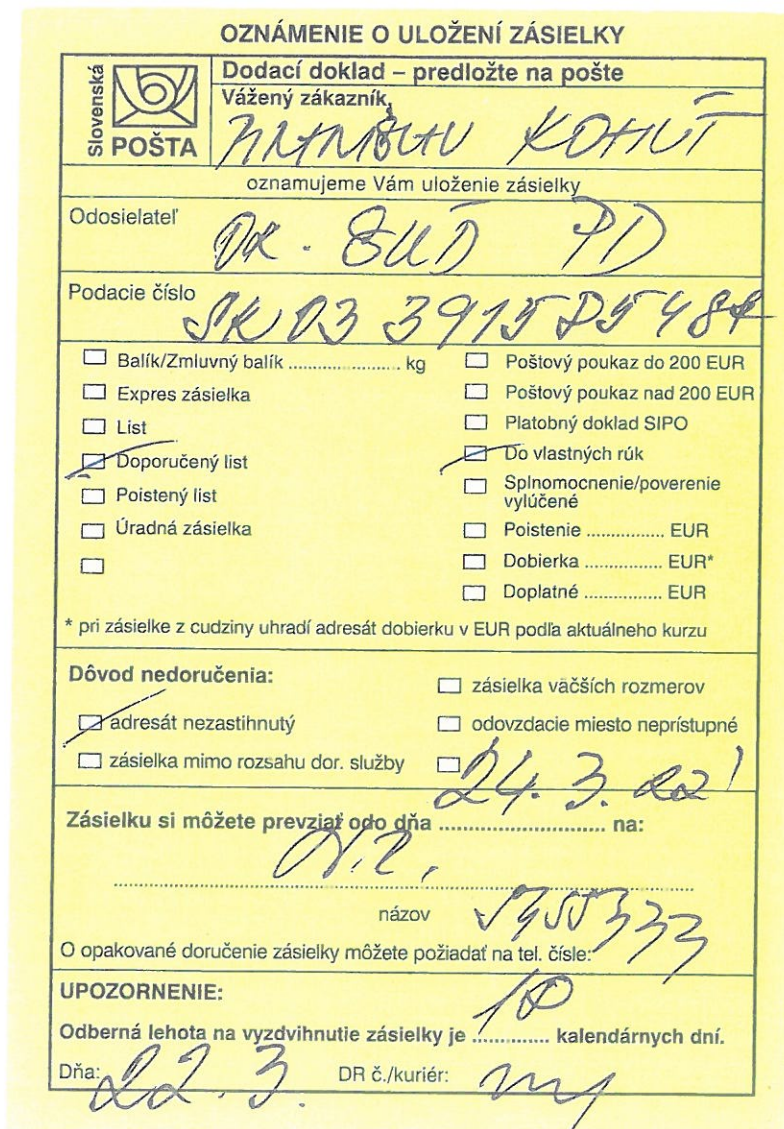 OZNÁMENIE O ULOŽENÍ ZÁSIELKY
Slovenská
POŠTA
Dodací doklad – predložte na pošte
Vážený zákazník,
KOHÚT
oznamujeme Vám uloženie zásielky
Odosielateľ
OK. SÚD PD
Podacie číslo
Balík/Zmluvný balík ...................... kg
Expres zásielka
List
Doporučený list
Poistený list
Úradná zásielka
Poštový poukaz do 200 EUR
Poštový poukaz nad 200 EUR
Platobný doklad SIPO
Do vlastných rúk
Splnomocnenie/poverenie
vylúčené
Poistenie ................ EUR
Dobierka ................ EUR*
Doplatné ................ EUR
* pri zásielke z cudziny uhradí adresát dobierku v EUR podľa aktuálneho kurzu
Dôvod nedoručenia:
adresát nezastihnutý
zásielka mimo rozsahu dor. služby
zásielka väčších rozmerov
odovzdacie miesto neprístupné
24. 3. 22
Zásielku si môžete prevziať odo dňa .......................... na:
názov
O opakované doručenie zásielky môžete požiadať na tel. čísle:
UPOZORNENIE:
Odberná lehota na vyzdvihnutie zásielky je 18 kalendárnych dní.
Dňa: 22. 3. DR č./kuriér: